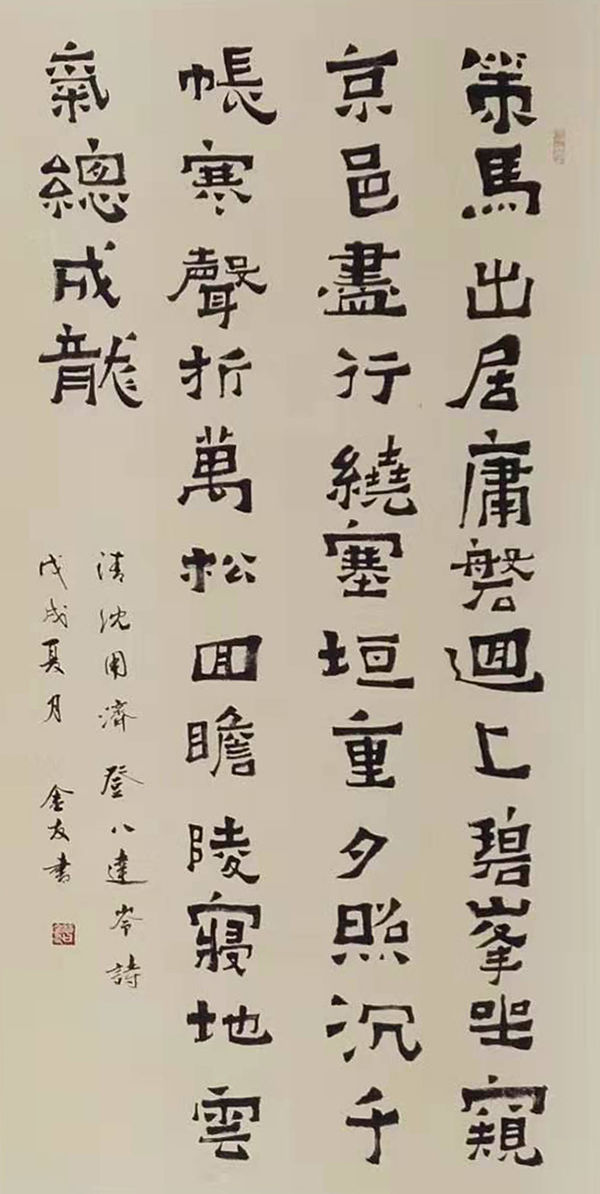 策馬出居庸磐迴上碧峯坐窺
京邑盡行繞塞垣重夕照沉千
帳寒聲折萬松回瞻陵寢地雲
氣總成龍
清沈用濟登八達岺詩
戊戌夏月 金友書